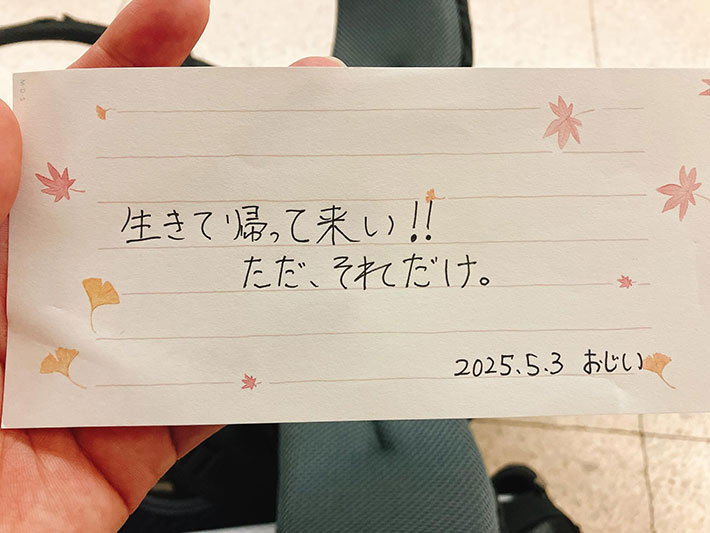 生きて帰って来い!!
ただ、それだけ。
2025.5.3 おじい